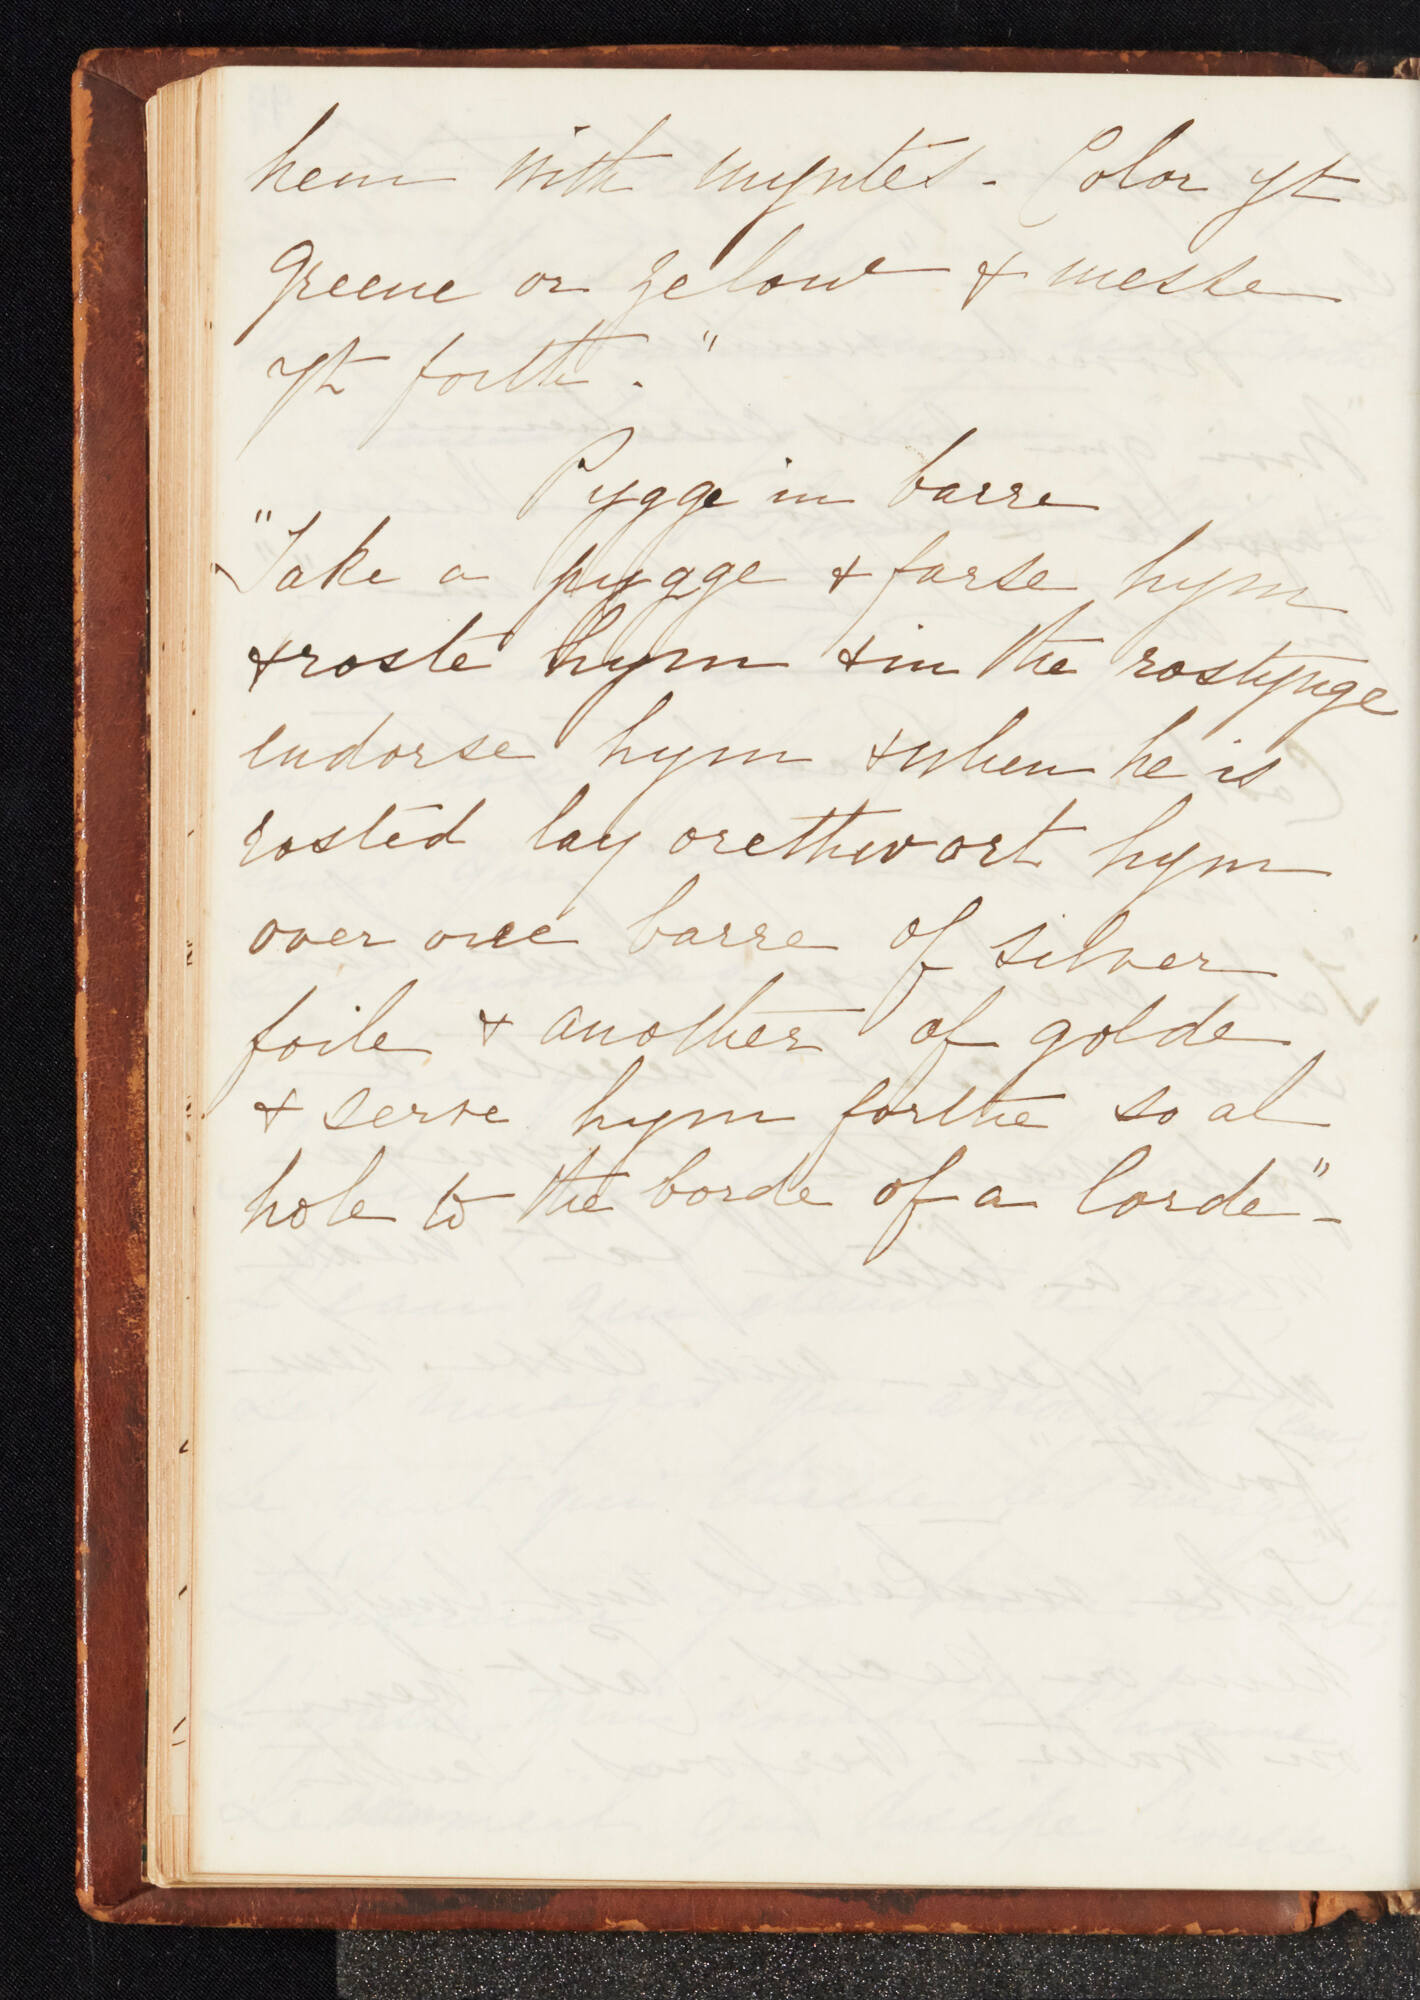 hem with myntes - Color yt
greene or zelow & messe
yt forth. "
Pygge in barre
"Take a pygge & farse hym
& roste hym & in the rostynge
endorse hym & when he is
rosted lay orethwart hym
over one barre of silver
foile & another of golde
& serve hym forthe so al
hole to the borde of a lorde" -